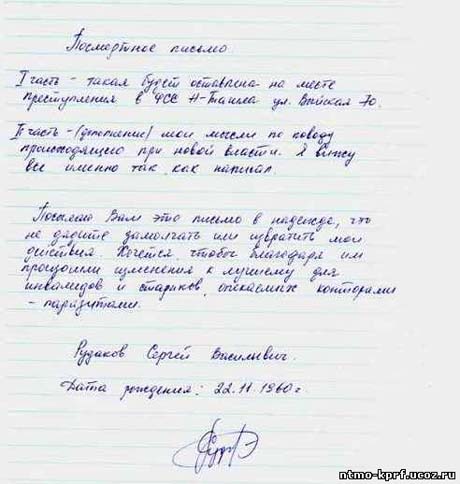 Посмертное письмо
I часть - такая будет оставлена на месте
преступления в ФСС Н-Тагила ул. Выйская 70.
II часть - (дополнение) мои мысли по поводу
происходящего при новой власти. Я вижу
все именно так, как написал.
Посылаю Вам это письмо в надежде, что
не дадите замолчать или извратить мои
действия. Хочется, чтобы благодаря им
произошли изменения к лучшему для
инвалидов и стариков, опекаемых конторами
- паразитами.
Рудаков Сергей Васильевич.
Дата рождения: 22.11.1960г.
ntmo-kprf.ucoz.ru